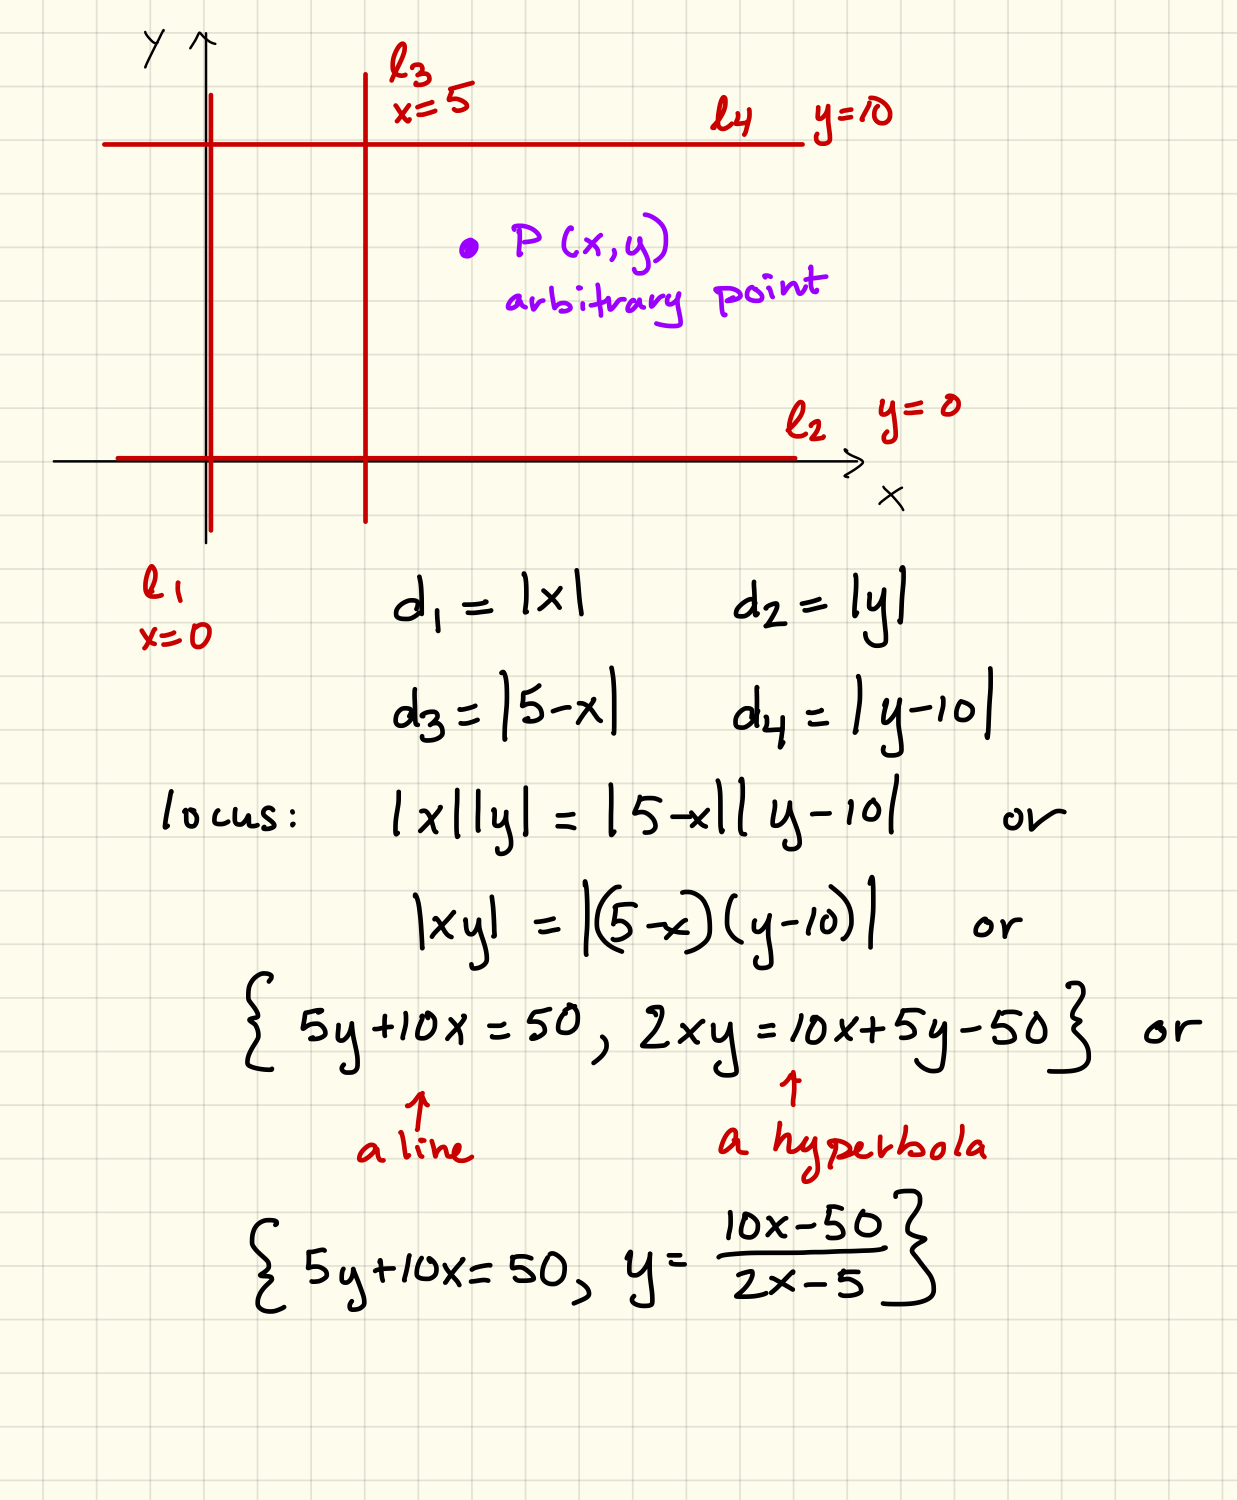 y
l3
x=5
l4 y=10
P (x,y)
arbitrary point
l2 y=0
x
l1
x=0
d1 = |x| d2 = |y|
d3 = |5-x| d4 = |y-10|
locus: |x||y| = |5-x||y-10| or
|xy| = |(5-x)(y-10)| or
{ 5y+10x = 50, 2xy = 10x+5y-50 } or
↑ ↑
a line a hyperbola
{ 5y+10x = 50, y = (10x-50)/(2x-5) }